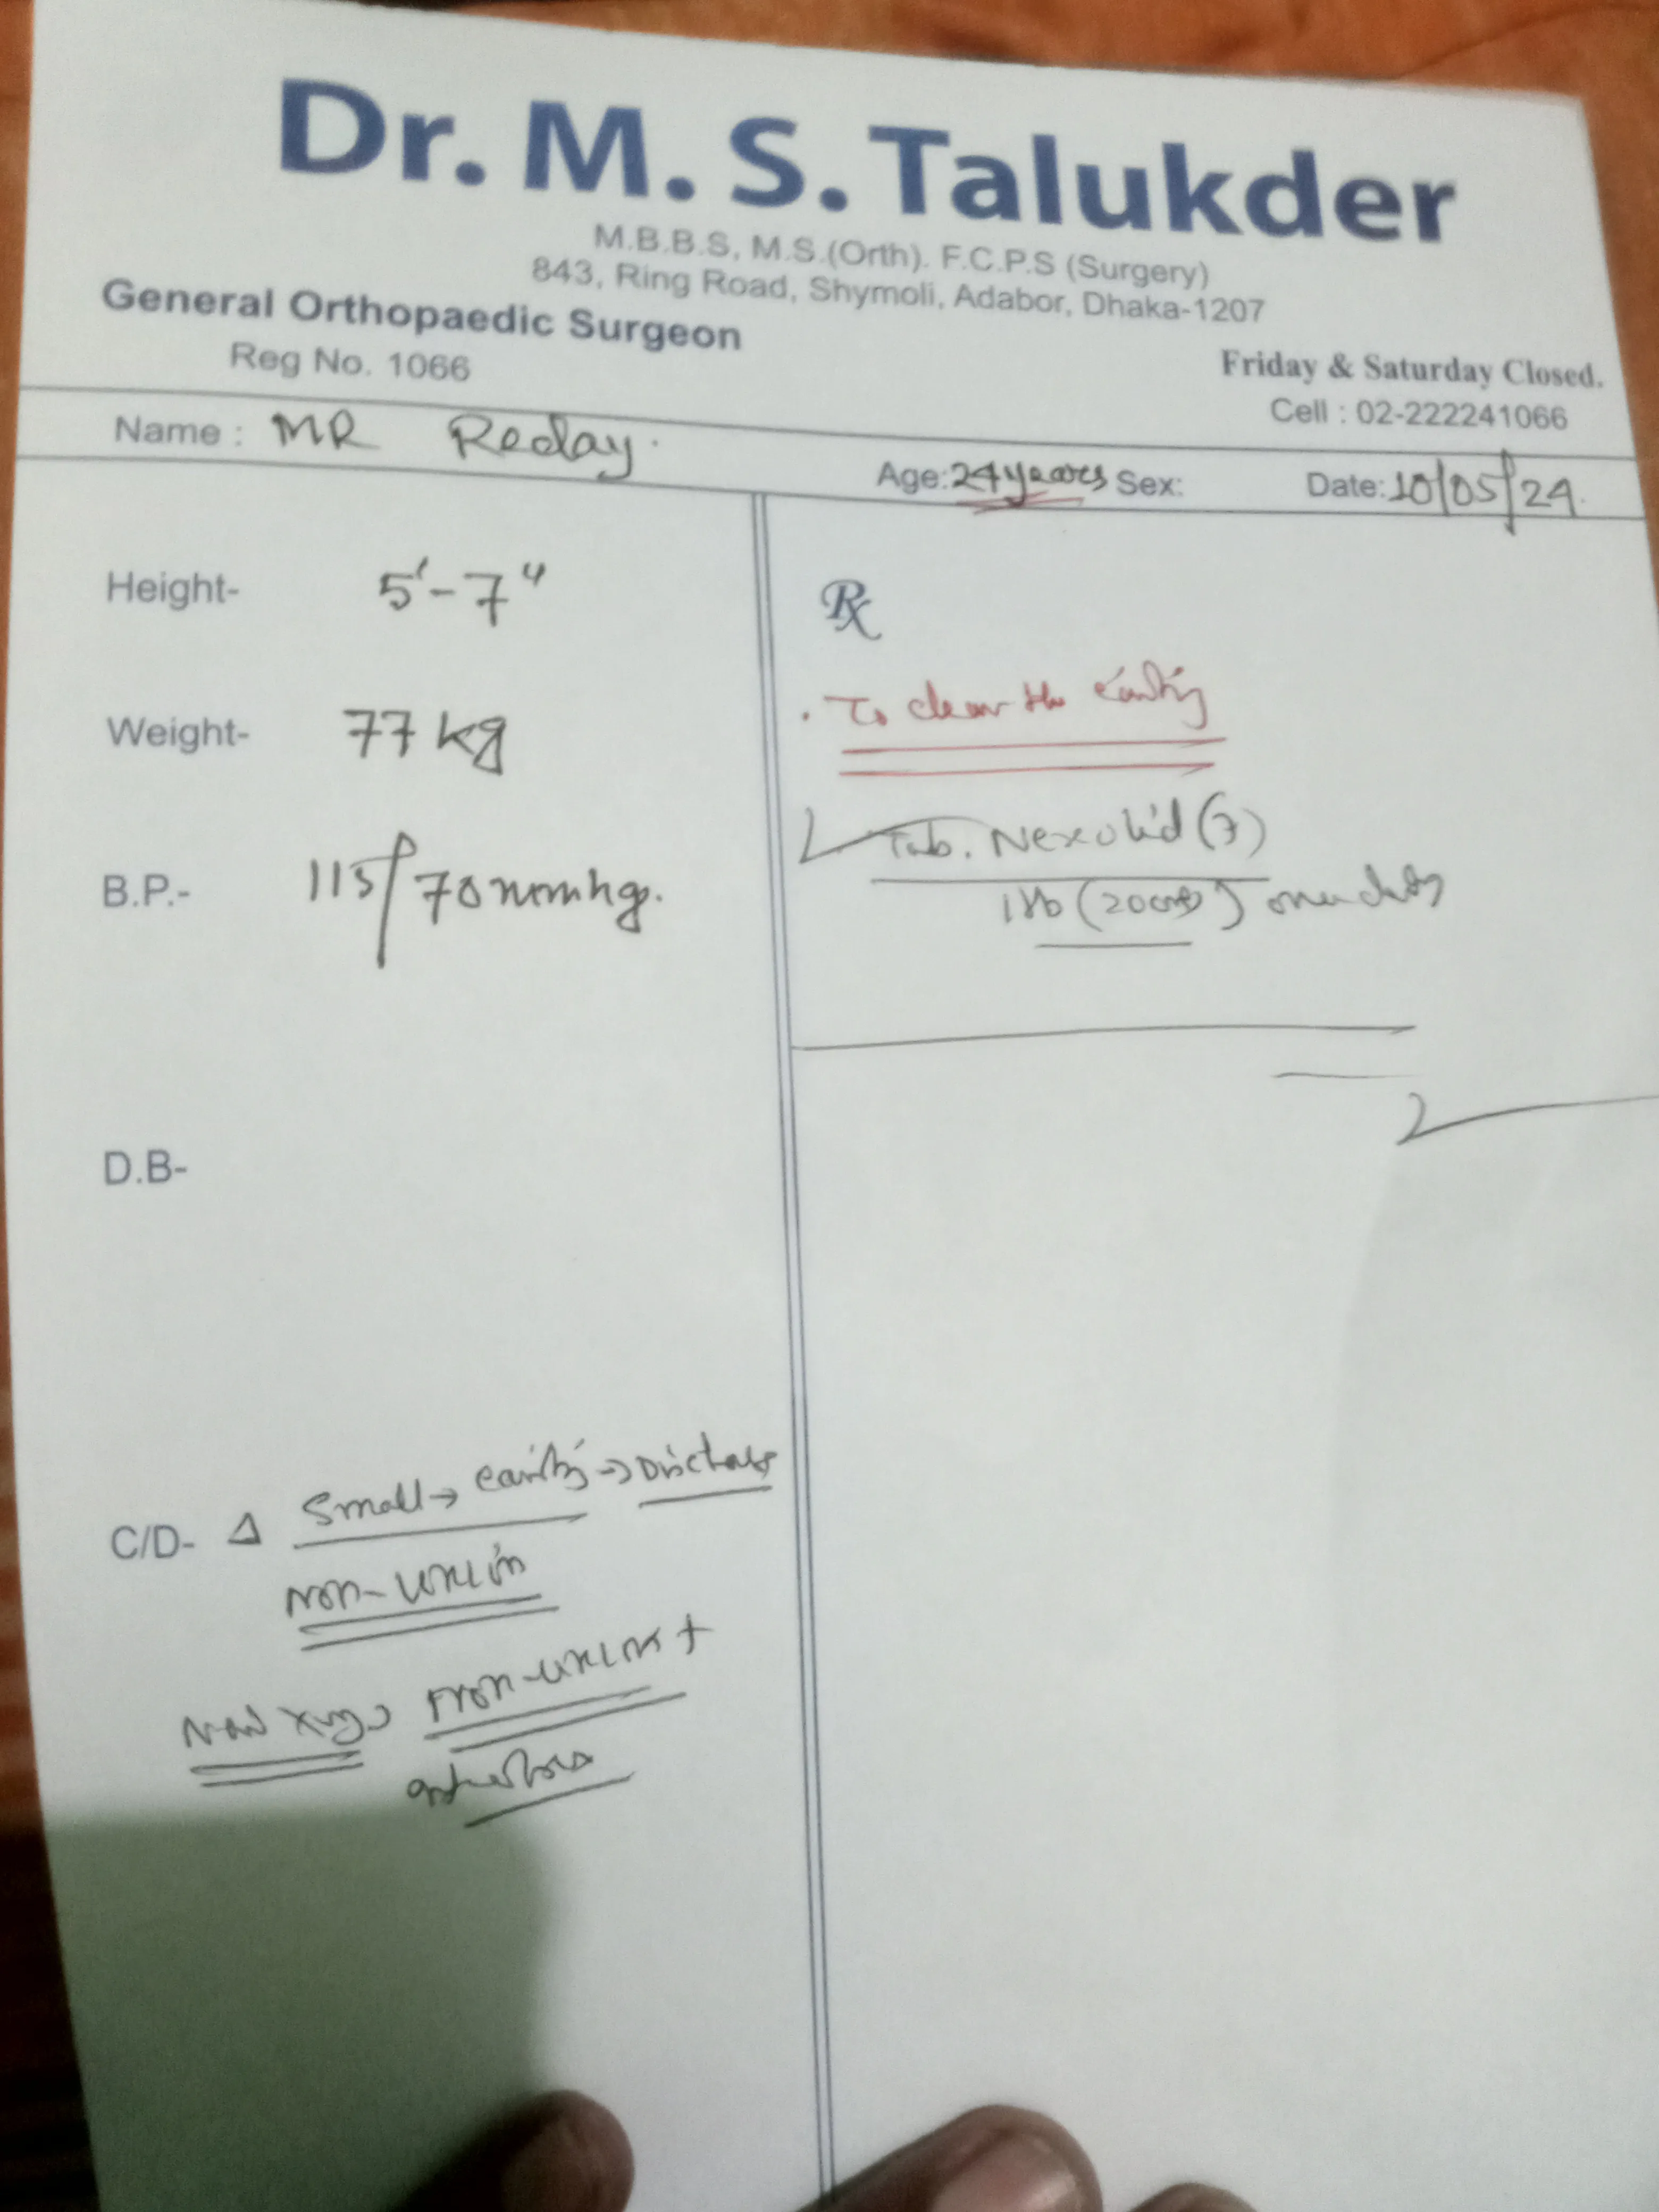 Dr. M. S. Talukder
M.B.B.S, M.S.(Orth). F.C.P.S (Surgery)
843, Ring Road, Shymoli, Adabor, Dhaka-1207
General Orthopaedic Surgeon
Reg No. 1066
Friday & Saturday Closed.
Cell : 02-222241066
Name : MR Reday.
Age: 24 years Sex: Date: 10/05/24.
Height- 5'-7"
Weight- 77 kg
B.P.- 115/70 mmhg.
D.B-
C/D- Δ Small→ cavity →
Non-union
Non-union +
Rx
. To clear the cavity
Tab. Nexolid (7)
(200mg)